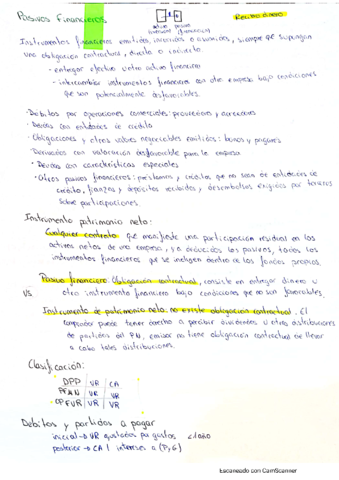 Pasivos financieros
Recibo dinero
activo pasivo
Instrumentos financieros emitidos, incurridos o asumidos, siempre que supongan
una obligación contractual, directa o indirecta.
- entregar efectivo u otro activo financiero
- intercambiar instrumentos financieros con otra empresa bajo condiciones
que son potencialmente desfavorables.
· Débitos por operaciones comerciales: proveedores y acreedores
· Deudas con entidades de crédito
· Obligaciones y otros valores negociables emitidos: bonos y pagarés
· Derivados con valoración desfavorable para la empresa
· Deudas con características especiales
· Otros pasivos financieros: préstamos y créditos que no sean de entidades de
crédito, fianzas y depósitos recibidos y desembolsos exigidos por terceros
sobre participaciones.
Instrumento patrimonio neto:
Cualquier contrato que manifieste una participación residual en los
activos netos de una empresa, ya deducidos los pasivos, todos los
instrumentos financieros que se incluyen dentro de los fondos propios.
Pasivo financiero Obligación contractual, consiste en entregar dinero u
vs. otro instrumento financiero bajo condiciones que no son favorables.
Instrumento de patrimonio neto, no existe obligación contractual. El
comprador puede tener derecho a percibir dividendos u otras distribuciones
de partidas del PN, emisor no tiene obligación contractual de llevar
a cabo tales distribuciones.
Clasificación:
DPP VR CA
VR VR
VR VR
Débitos y partidas a pagar
inicial → VR ajustados por gastos < 1 año
posterior → CA | intereses a (PyG)
Escaneado con CamScanner